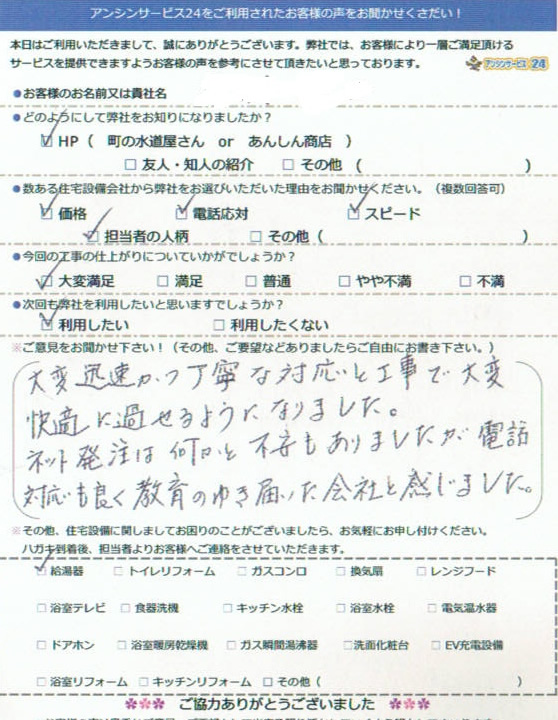 アンシンサービス24をご利用されたお客様の声をお聞かせくさだい！
本日はご利用いただきまして、誠にありがとうございます。弊社では、お客様により一層ご満足頂ける
サービスを提供できますようお客様の声を参考にさせて頂きたいと思っております。 アンシンサービス 24
●お客様のお名前又は貴社名
●どのようにして弊社をお知りになりましたか？
☑ HP（ 町の水道屋さん or あんしん商店 ）
□ 友人・知人の紹介 □ その他 （ ）
●数ある住宅設備会社から弊社をお選びいただいた理由をお聞かせください。（複数回答可）
☑ 価格 ☑ 電話応対 ☑ スピード
☑ 担当者の人柄 □ その他（ ）
●今回の工事の仕上がりについていかがでしょうか？
☑ 大変満足 □ 満足 □ 普通 □ やや不満 □ 不満
●次回も弊社を利用したいと思いますでしょうか？
☑ 利用したい □ 利用したくない
※ご意見をお聞かせ下さい！（その他、ご要望などありましたらご自由にお書き下さい。）
大変迅速かつ丁寧な対応いと工事で大変
快適に過せるようになりました。
ネット発注は何かと不安もありましたが電話
対応も良く教育のゆき届いた会社と感じました。
※その他、住宅設備に関しましてお困りのことがございましたら、お気軽にお申し付けください。
ハガキ到着後、担当者よりお客様へご連絡をさせていただきます。
☑ 給湯器 □ トイレリフォーム □ ガスコンロ □ 換気扇 □ レンジフード
□ 浴室テレビ □ 食器洗機 □ キッチン水栓 □ 浴室水栓 □ 電気温水器
□ ドアホン □ 浴室暖房乾燥機 □ ガス瞬間湯沸器 □洗面化粧台 □ EV充電設備
□ 浴室リフォーム □ キッチンリフォーム □ その他（ ）
ご協力ありがとうございました